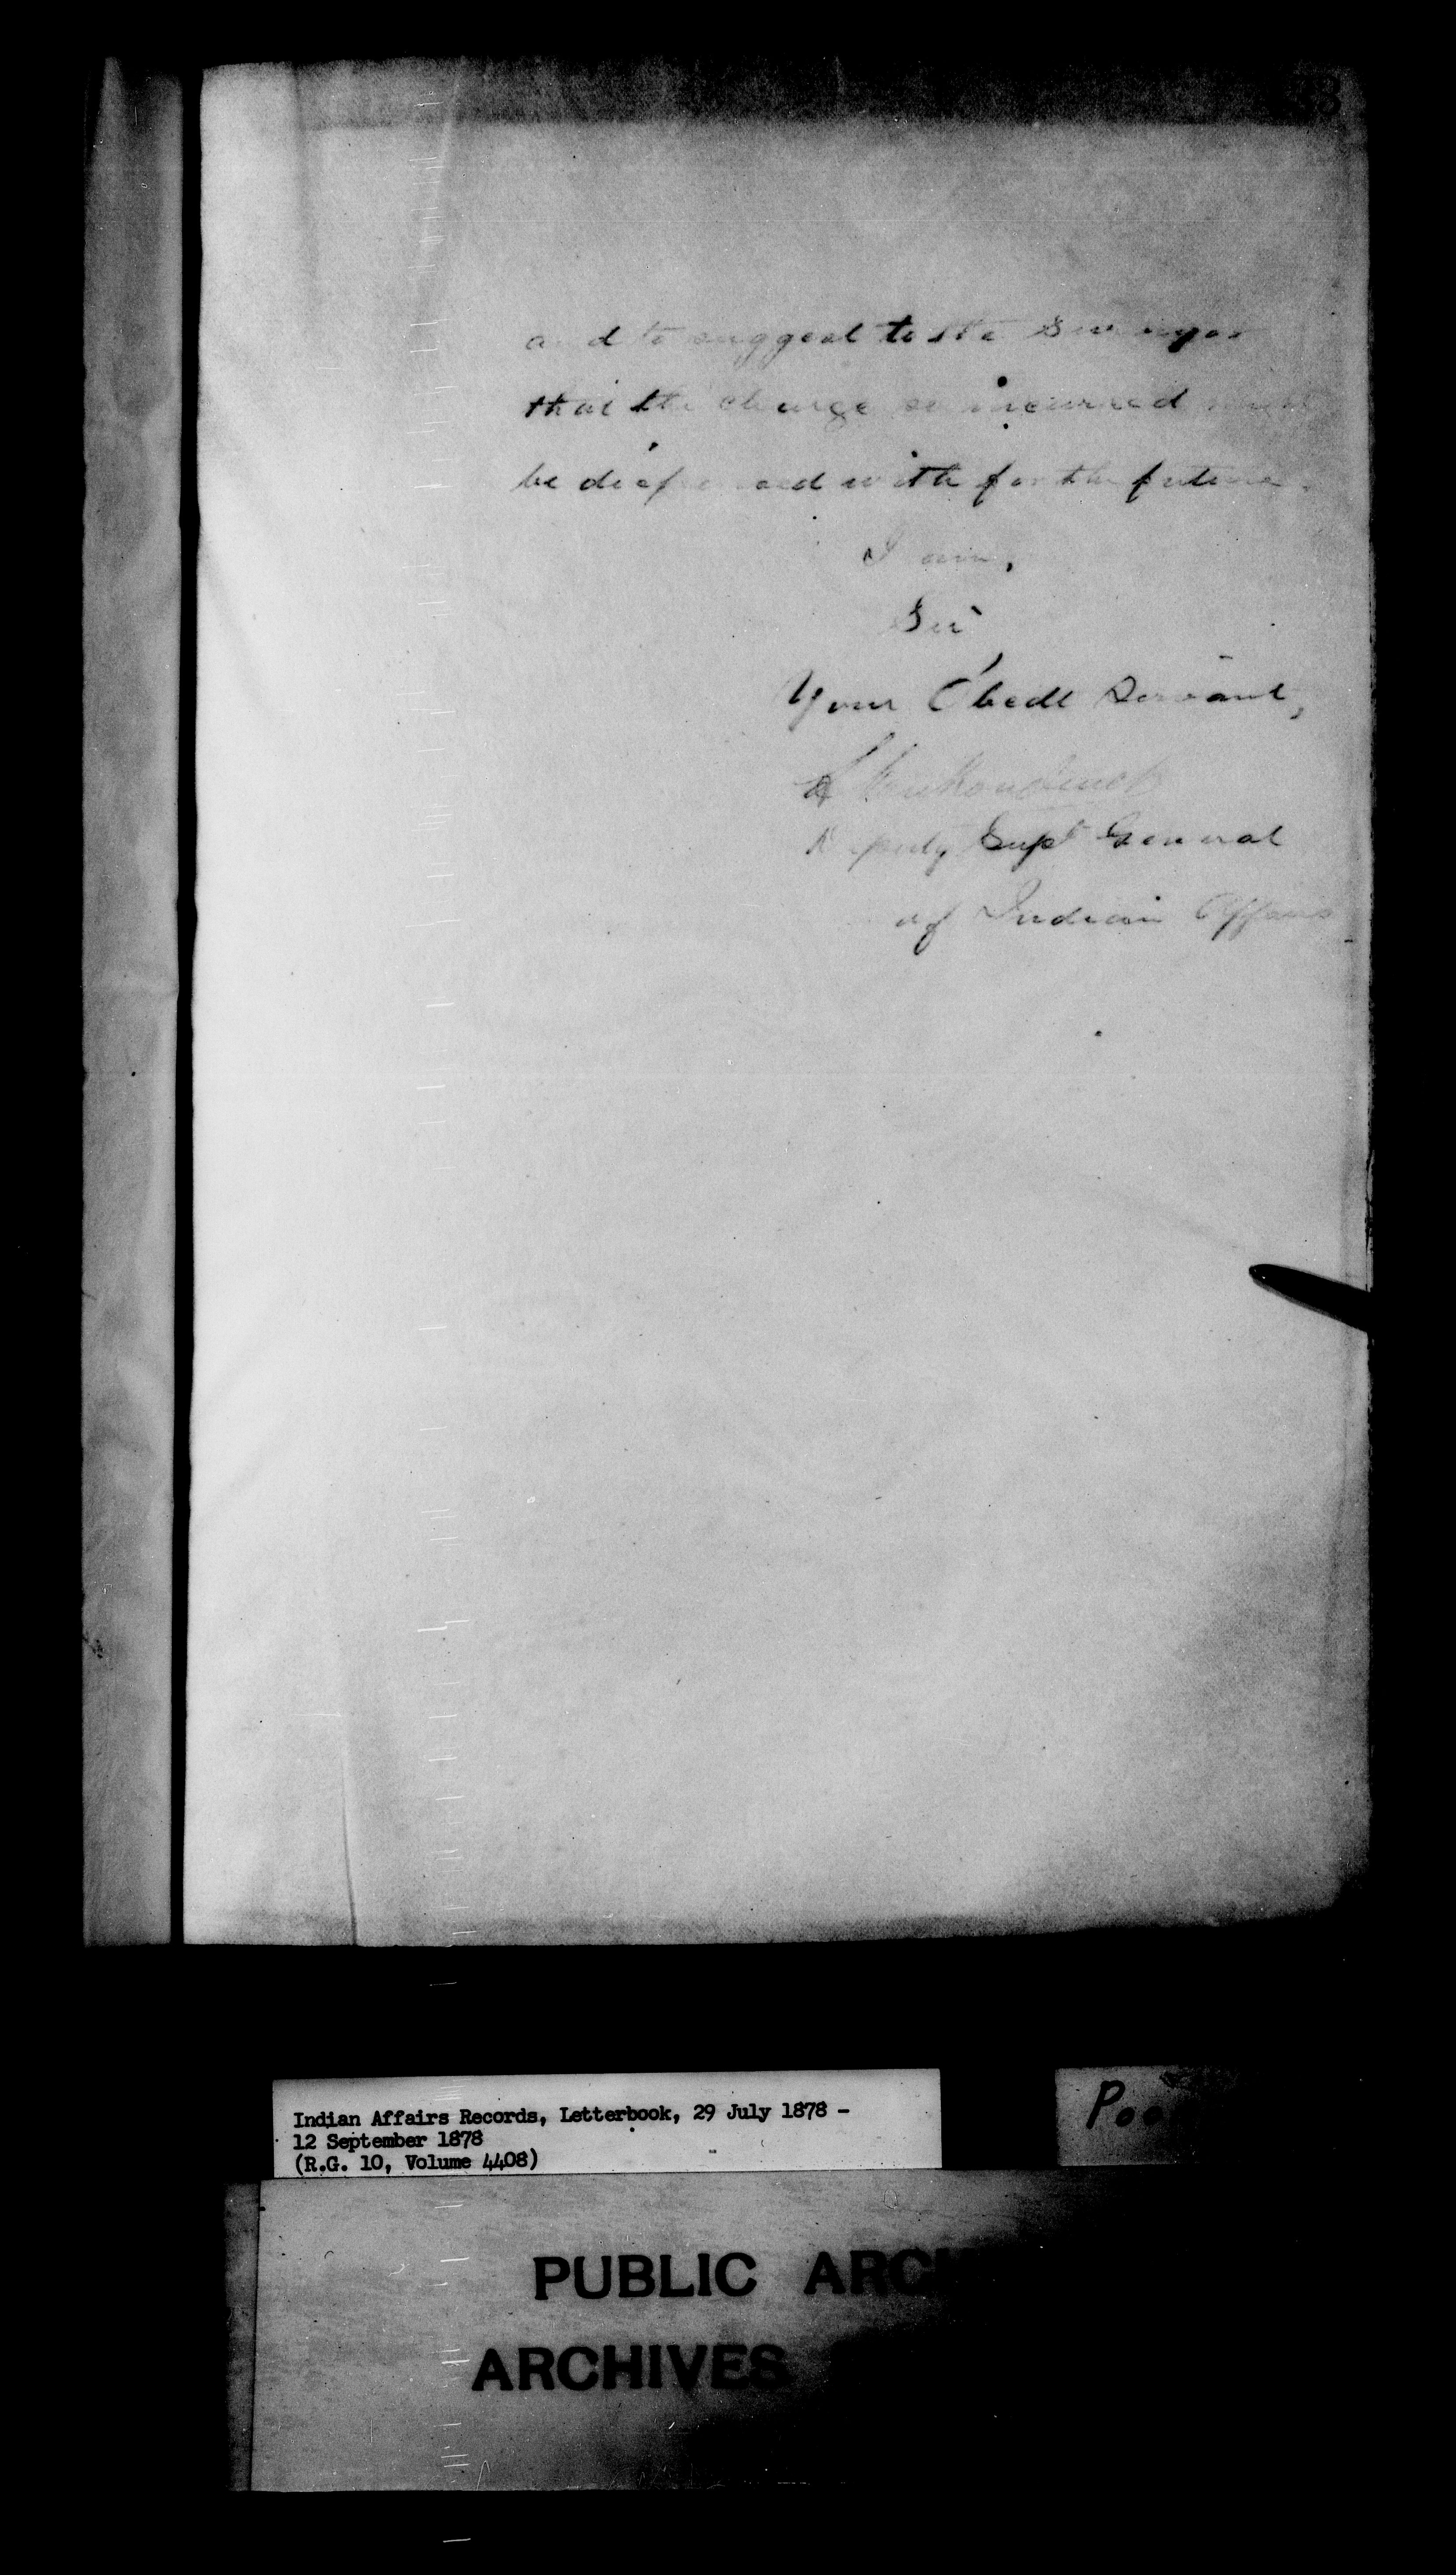 and to suggest to the Surveyor
that the charge so incurred might
be dispensed with for the future.
I am,
Sir
Your Obedt Servant,
Deputy Supt General
of Indian Affairs
Indian Affairs Records, Letterbook, 29 July 1878 -
12 September 1878
(R.G. 10, Volume 4408)
PUBLIC ARCH
ARCHIVES